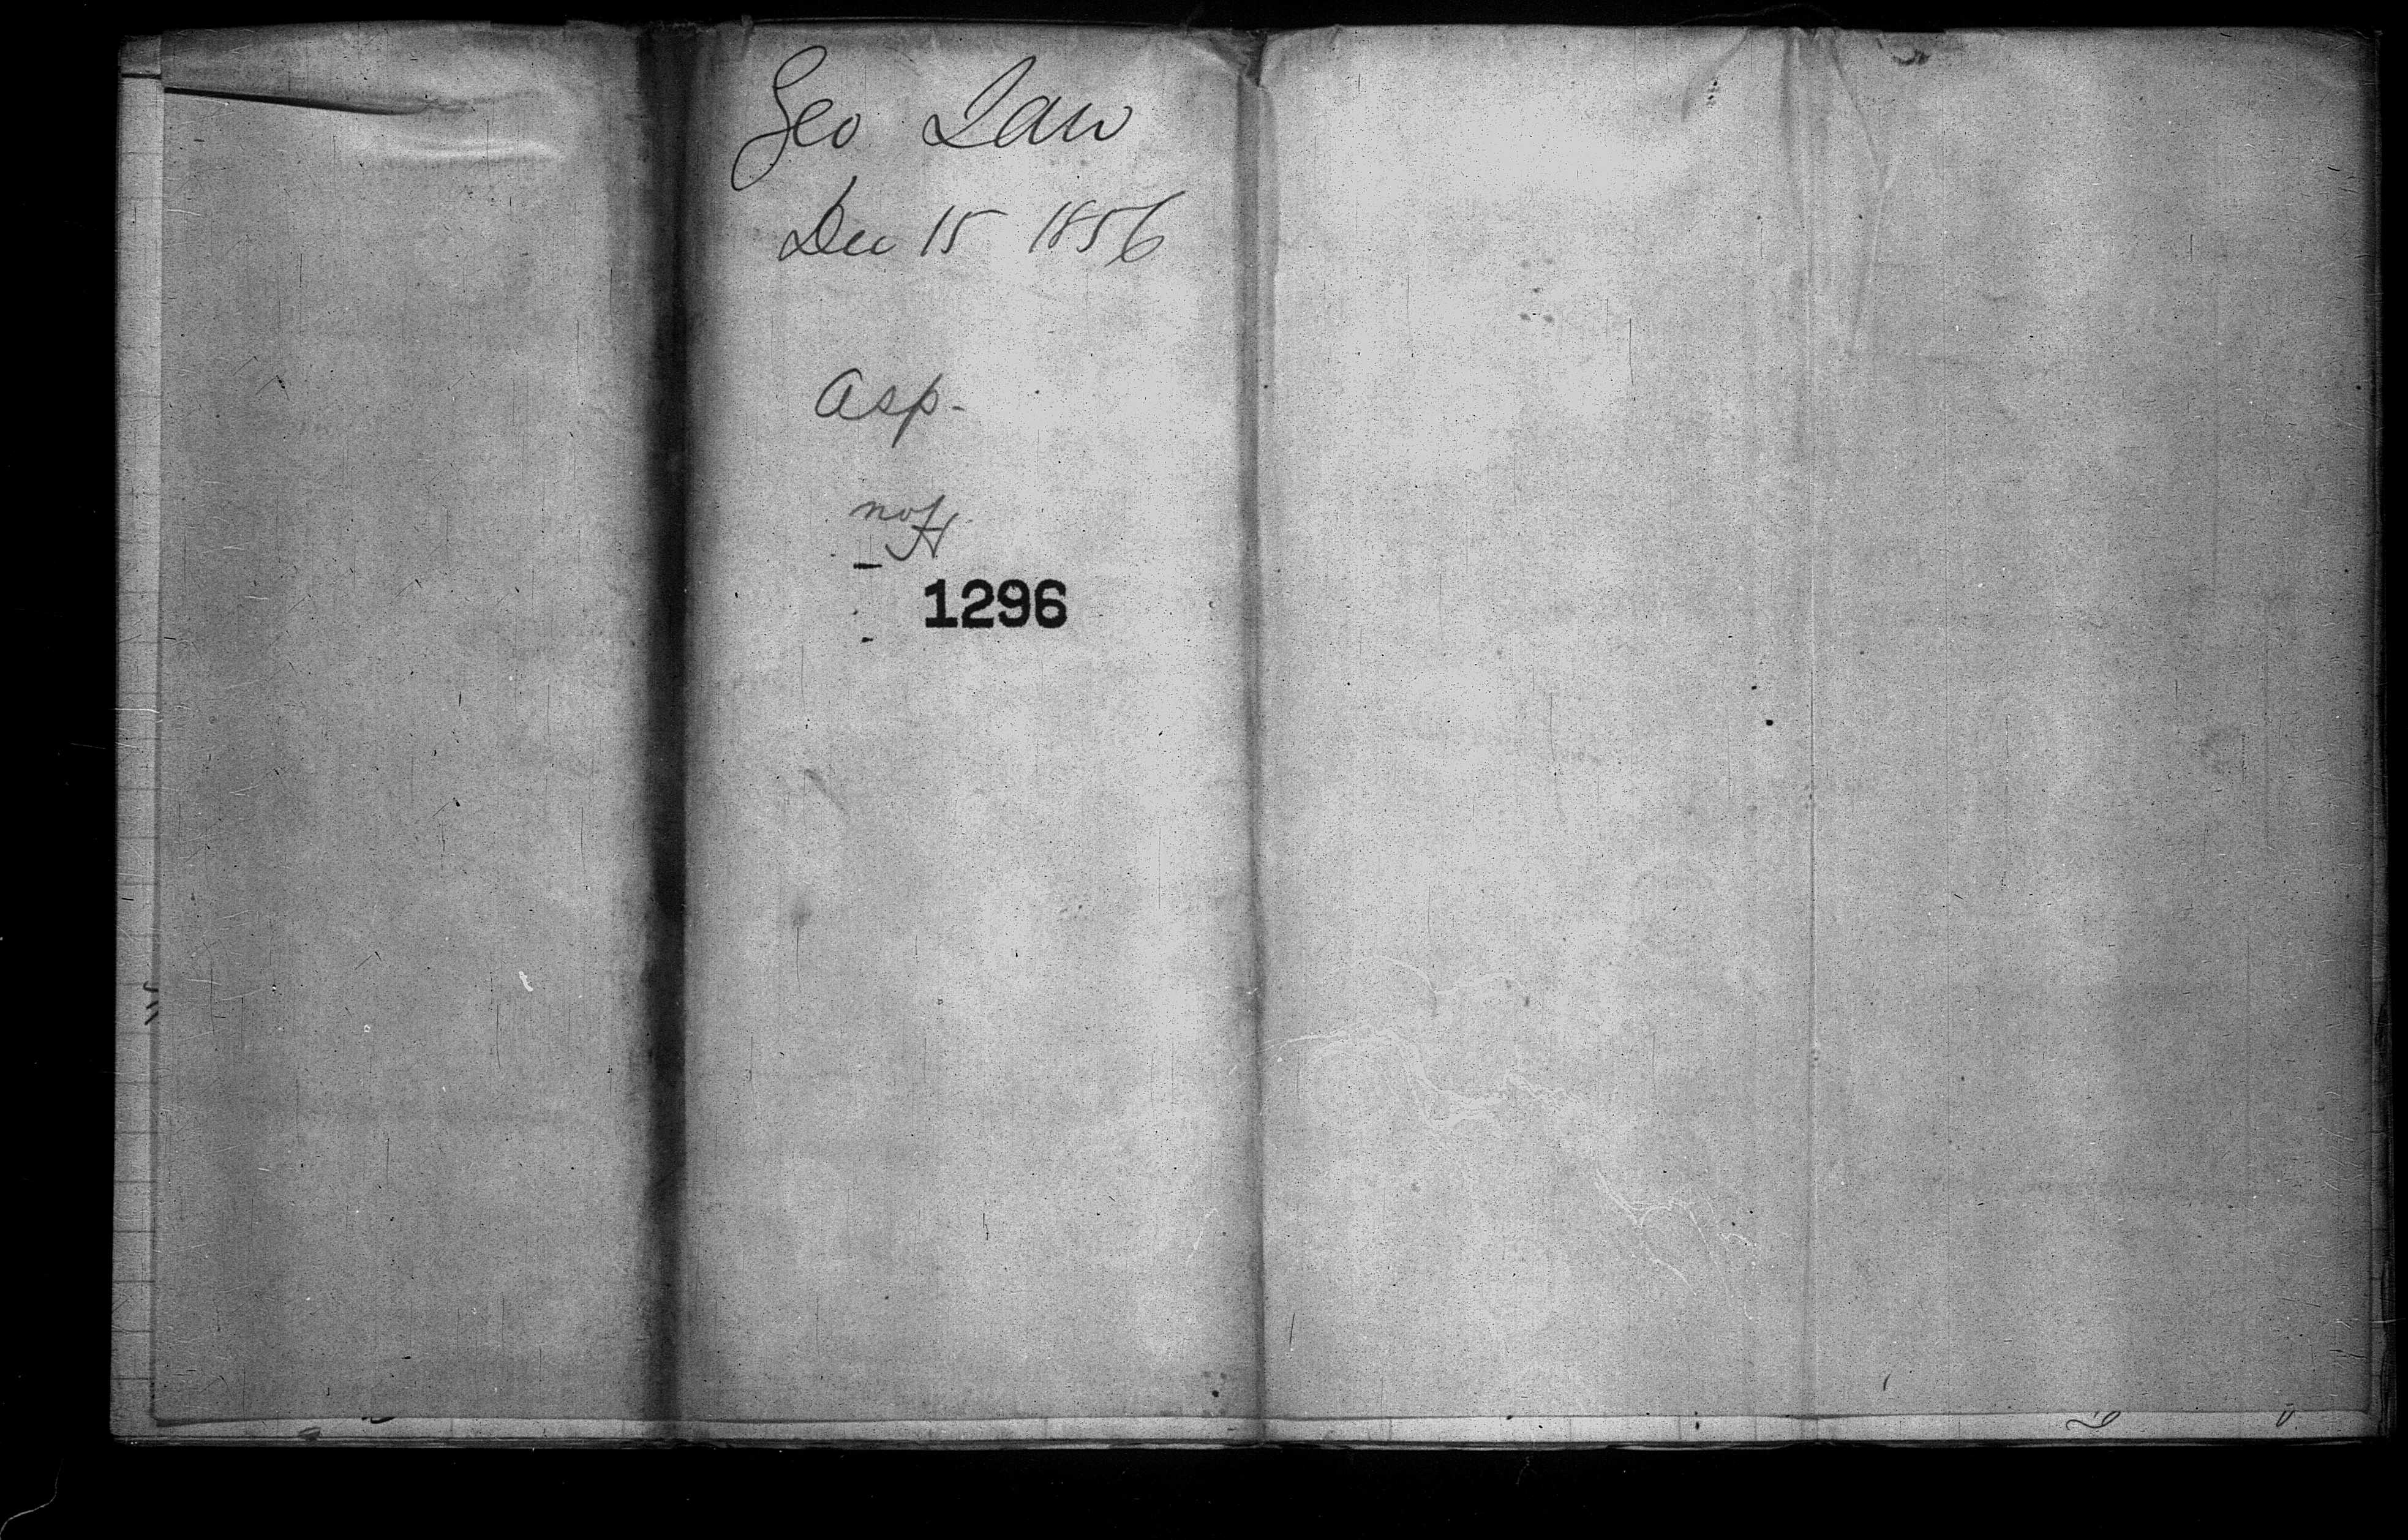 Geo Law
Dec 15 1856
Asp-
no H
1296